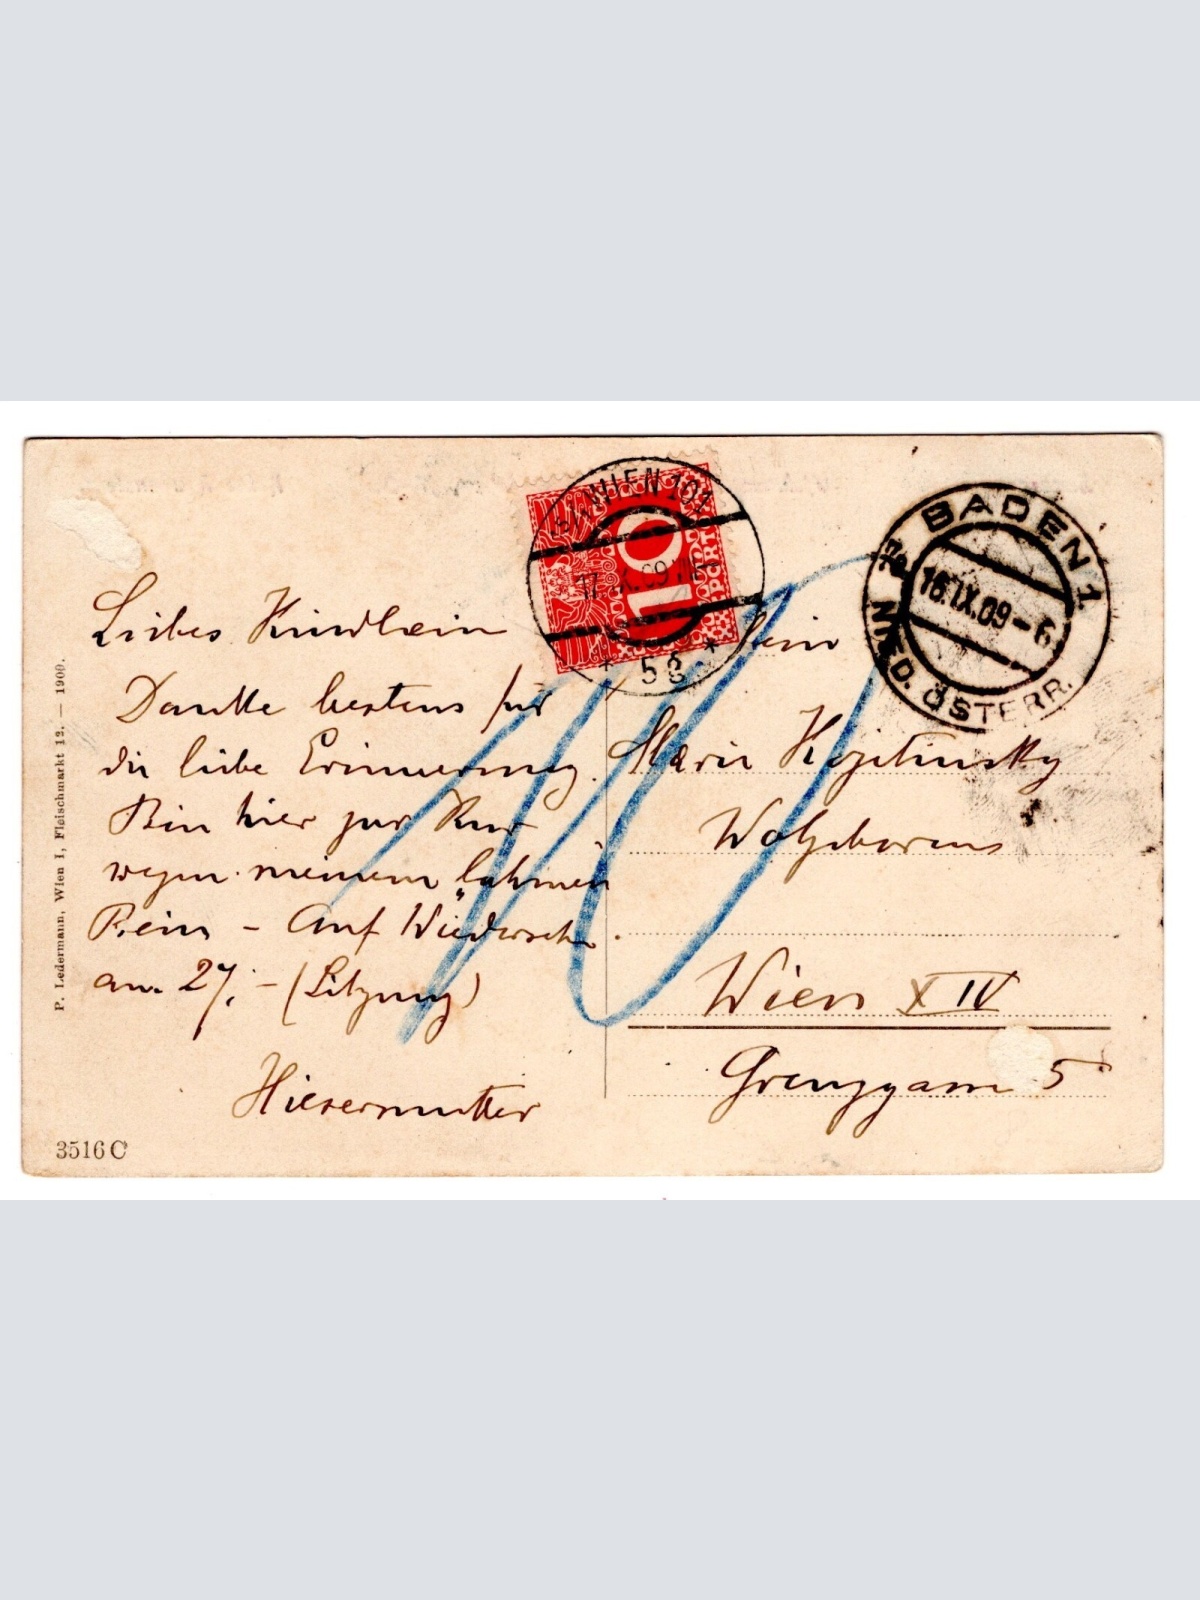 Liebes Kindlein
Danke bestens für
die liebe Erinnerung.
Bin hier zur Kur
wegen meinem "lahmen
Bein - Auf Wiedersehn
am 27. - (Sitzung)
Hiesermutter
3516 C
P. Ledermann, Wien I, Fleischmarkt 12. — 1909.
WIEN 101
17.IX.09
* 5g *
10
PORTO
10
BADEN 1
16.IX.09-6
NIED. ÖSTERR.
7a
Marie
Wohlgeboren
Wien XIV
Grenzgasse 5